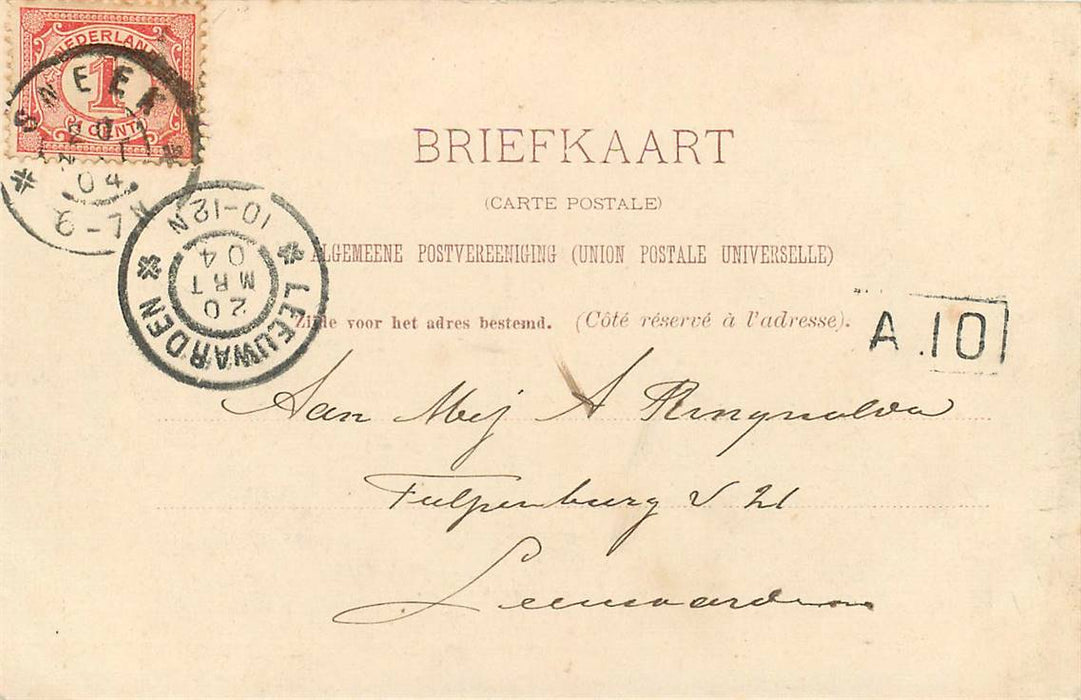 NEDERLAND
1
CENT
SNEEK
20
04
7-9 N
10-12N
LEEUWARDEN
20
MRT
04
BRIEFKAART
(CARTE POSTALE)
ALGEMEENE POSTVEREENIGING (UNION POSTALE UNIVERSELLE)
Zijde voor het adres bestemd. (Côté réservé à l'adresse).
A.10
Aan Mej A
21
Leeuwarden